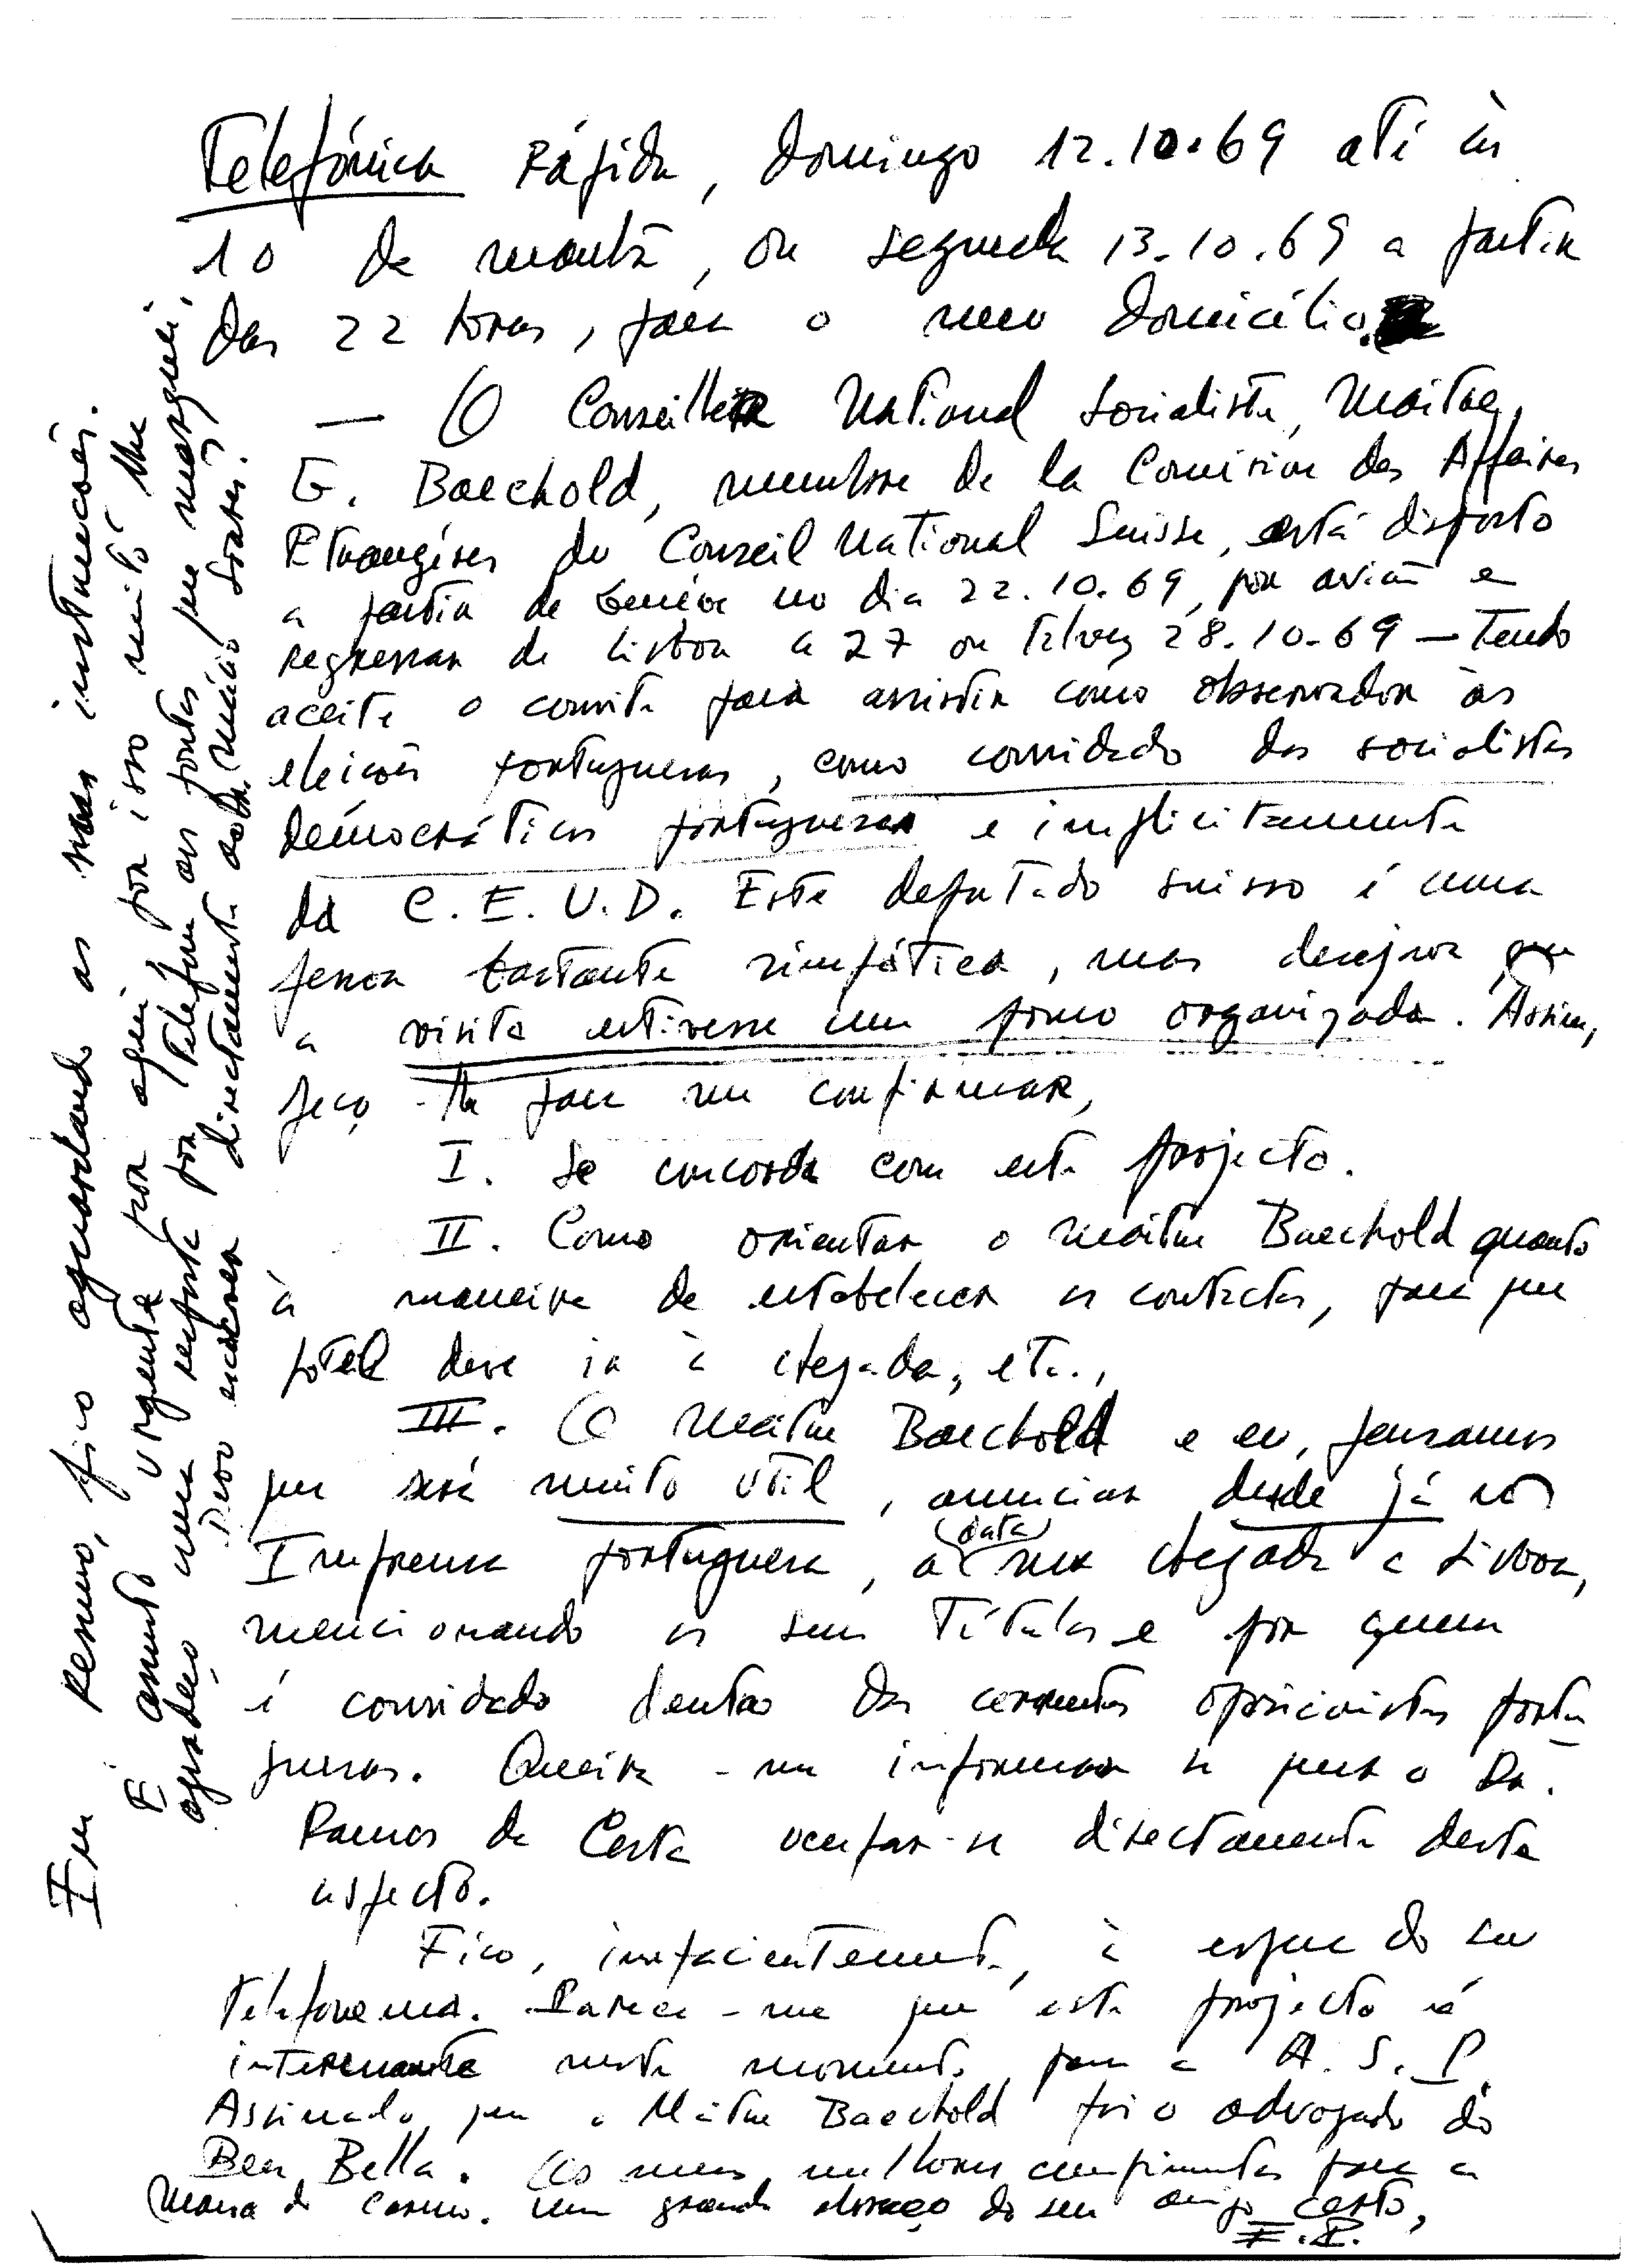 Telefónica Rápida, domingo 12.10.69 até às
10 da manhã, ou segunda 13.10.69 a partir
das 22 horas, para o meu domicílio.
— O Conseiller National Socialista, Maître
G. Baechold, membre de la Comission des Affaires
Etrangéres du Conseil National Suisse, está disposto
a partir de Genève no dia 22.10.69, por avião e
regressar de Lisboa a 27 ou talvez 28.10.69 — Tendo
aceite o convite para assistir como observador às
eleições portuguesas, como convidado dos socialistas
democráticos portugueses e implicitamente
da C.E.U.D. Este deputado suisso é uma
pessoa bastante simpática, mas desejava que
a visita estivesse um pouco organizada. Assim,
peço-lhe para me confirmar,
I. Se concorda com este projecto.
II. Como orientar o Maître Baechold quanto
à maneira de estabelecer os contactos, para que
hotel deve ir à chegada, etc.,
III. O Maître Baechold e eu, pensamos
que será muito útil, anunciar desde já na
Imprensa portuguesa, a (data) sua chegada a Lisboa,
mencionando os seus Títulos e por quem
é convidado dentro das correntes oposicionistas portu
guesas. Queira-me informar se quer o Dr.
Ramos da Costa ocupar-se directamente deste
aspecto.
Fico, impacientemente, à espera do seu
telefonema. Parece-me que este projecto é
interessante neste momento para a A.S.P.
Assinado, que o Maître Baechold foi o advogado do
Ben Bella. Os meus melhores cumprimentos para a
Maria do Carmo. Um grande abraço do seu amigo certo,
F.P.
Em resumo, fico aguardando as suas instruções.
É assunto urgente por aqui por isso muito lhe
agradeço uma resposta por telefone aos pontos que marquei.
Devo escrever directamente ao Dr. Mário Soares?